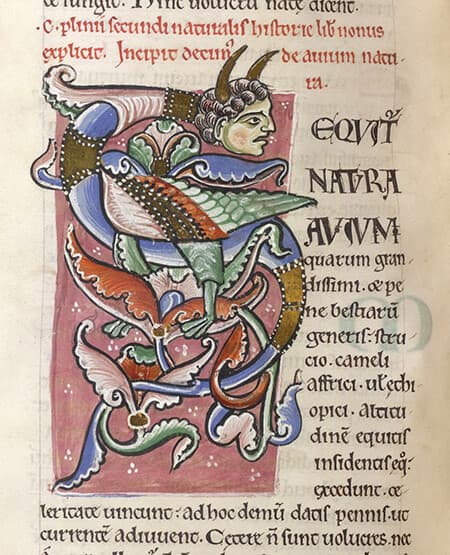 .C. plinii secundi naturalis historie lib' nonus
explicit. Incipit decim' de avium natu
ra.
S EQUIT'
NATURA
AVIUM
quarum gran-
dissimi. & pe-
ne bestiarū
generis. stru-
cio. cameli
affrici. ul' ęthi-
opici. Altitu-
dinē equitis
insidentis eq;
excedunt. ce-
leritate vincunt. ad hoc demū datis pennis. ut
currentē adiuvent. Cetere n̄ sunt volucres. nec